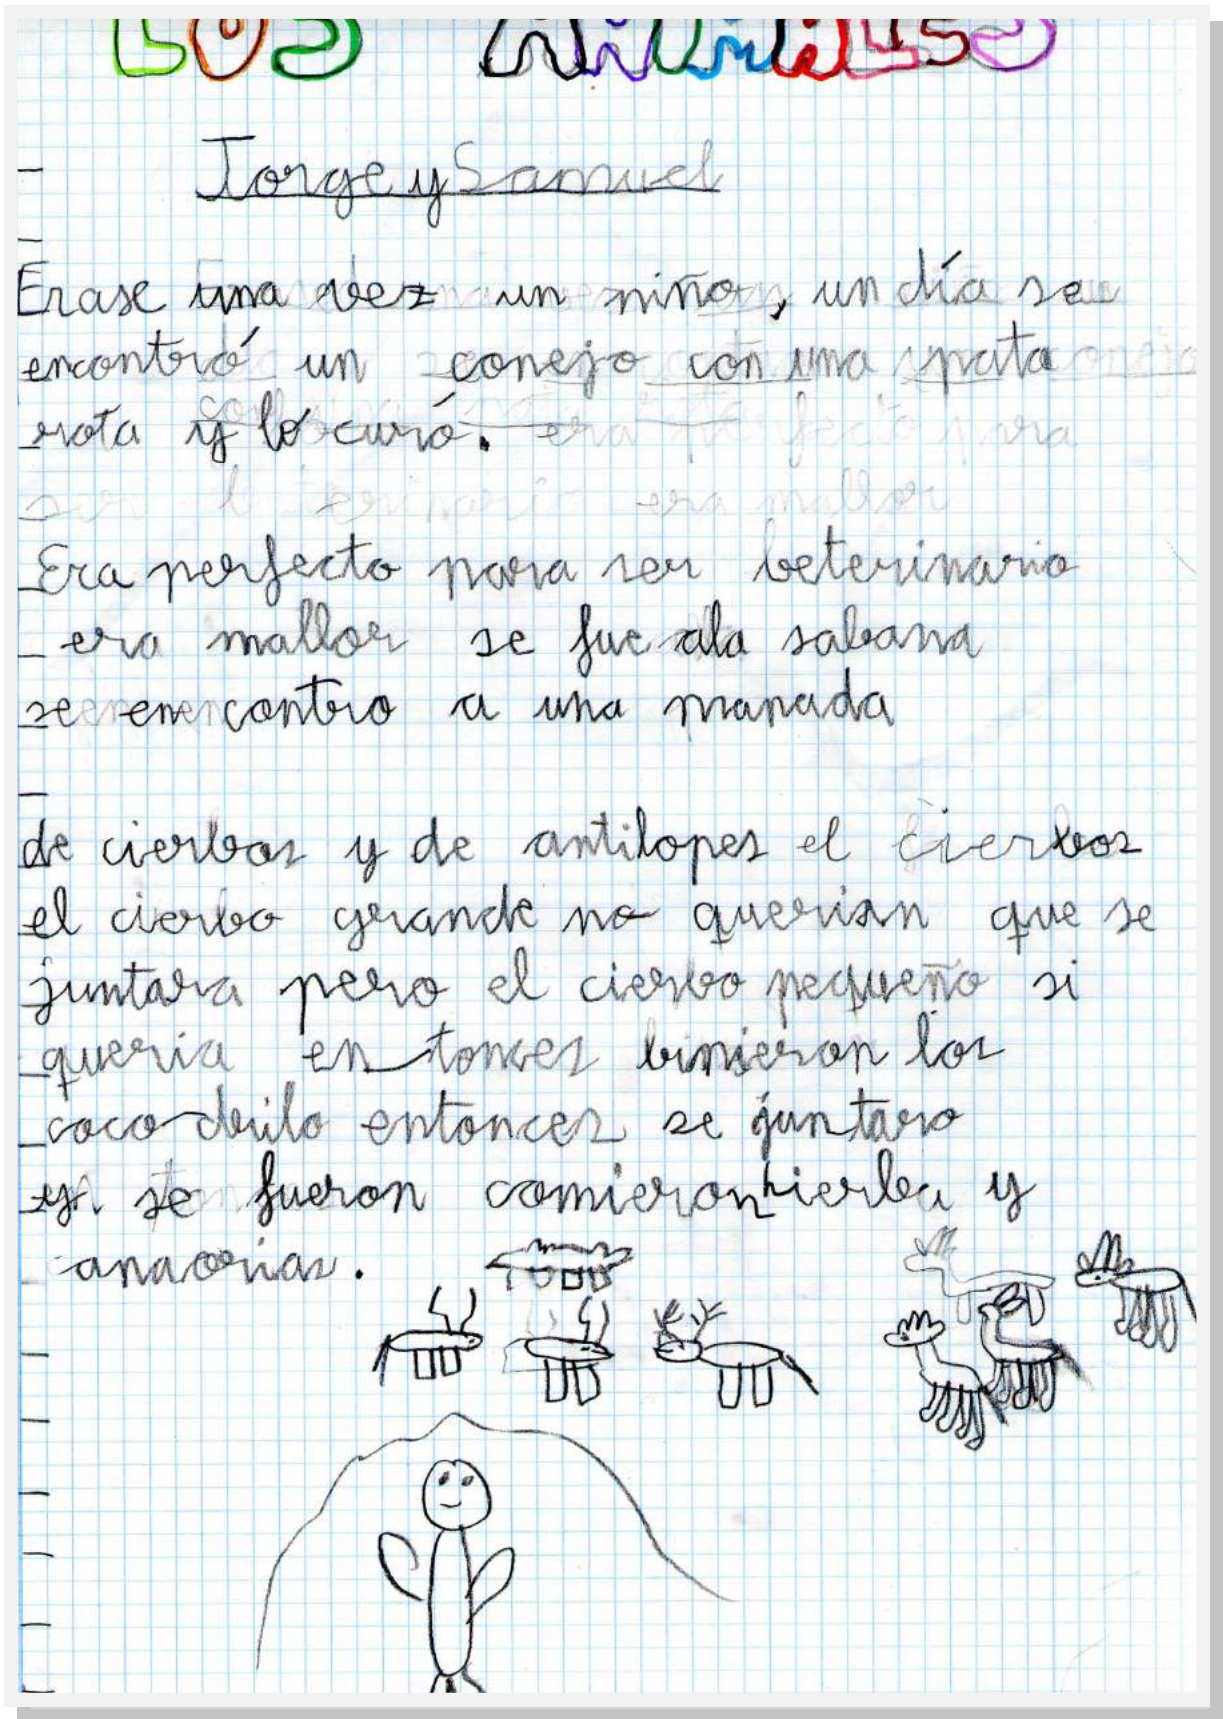 LOS ANIMALES
Jorge y Samuel
Erase una vez un niño, un día se
encontró un conejo con una pata
rota y lo curó.
Era perfecto para ser beterinario
era mallor se fue ala sabana
se encontro a una manada
de cierbos y de antilopes el cierbos
el cierbo grande no querian que se
juntara pero el cierbo pequeño si
queria en tonces binieron los
cocodrilo entonces se juntaro
y se fueron comieron hierba y
anaorias.